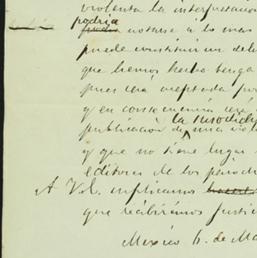 violenta la interpretacion
podria
notarse a lo mas
puede constituir un deli
que hemos hecho tenga
pues sea aceptada por
y en consecuencia
la
publicacion de una
y que no tiene lugar
editores de los periodi
A V.E. suplicamos
que recibirémos justici
Mexico 6. de Ma